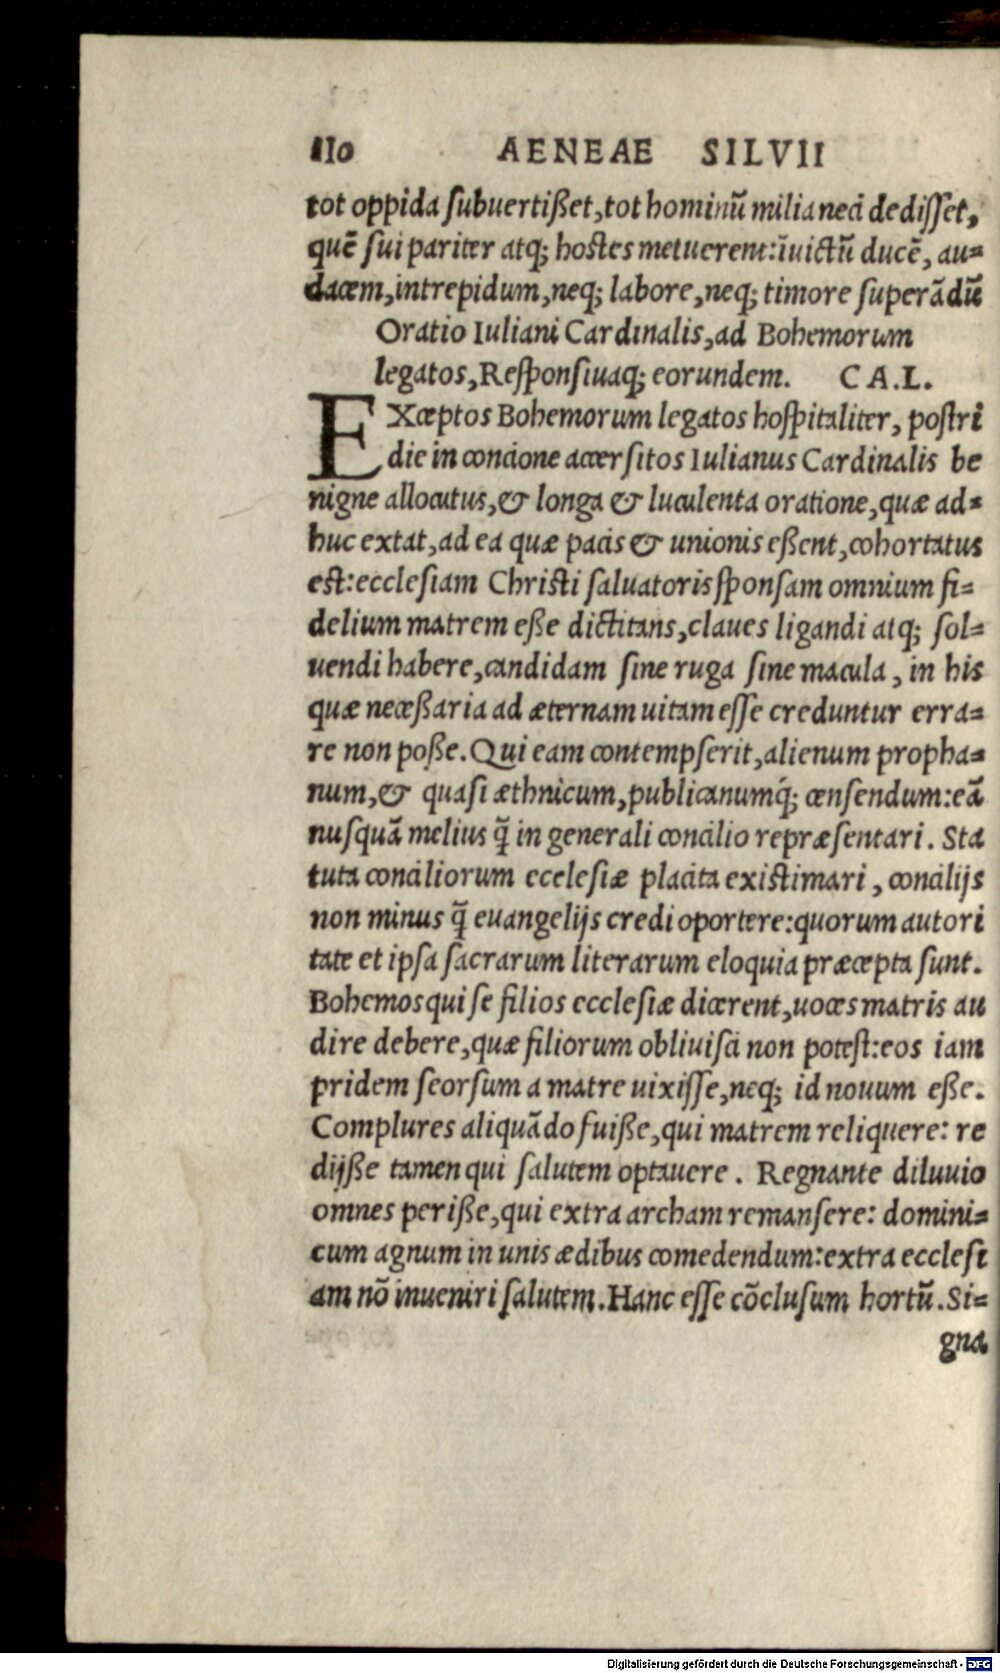 110 AENEAE SILVII
tot oppida ſubuertißet, tot hominū milia neci dediſſet,
quē ſui pariter atq; hostes metuerent: īuictū ducē, au=
dacem, intrepidum, neq; labore, neq; timore ſuperādū
Oratio Iuliani Cardinalis, ad Bohemorum
legatos, Reſponſiuaq; eorundem. CA.L.
EXceptos Bohemorum legatos hoſpitaliter, poſtri
die in concione accerſitos Iulianus Cardinalis be
nigne allocutus, & longa & luculenta oratione, quæ ad=
huc extat, ad ea quæ pacis & unionis eßent, cohortatus
est: eccleſiam Christi ſaluatoris ſponſam omnium fi=
delium matrem eße dictitans, claues ligandi atq; ſol=
uendi habere, candidam ſine ruga ſine macula, in his
quæ neceßaria ad æternam uitam eſſe creduntur erra=
re non poße. Qui eam contempſerit, alienum propha=
num, & quaſi æthnicum, publicanumq́; cenſendum: eā
nuſquā melius q̄ in generali concilio repræſentari. Sta
tuta conciliorum eccleſiæ placita existimari, concilijs
non minus q̄ euangelijs credi oportere: quorum autori
tate et ipſa ſacrarum literarum eloquia præcepta ſunt.
Bohemos qui ſe filios eccleſiæ dicerent, uoces matris au
dire debere, quæ filiorum obliuiſci non poteſt: eos iam
pridem ſeorſum a matre uixiſſe, neq; id nouum eße.
Complures aliquādo fuiße, qui matrem reliquere: re
dijße tamen qui ſalutem optauere. Regnante diluuio
omnes perijße, qui extra archam remanſere: domini=
cum agnum in unis ædibus comedendum: extra eccleſi
am nō inueniri ſalutem. Hanc eſſe cōcluſum hortū. Si=
gna
Digitalisierung gefördert durch die Deutsche Forschungsgemeinschaft - DFG